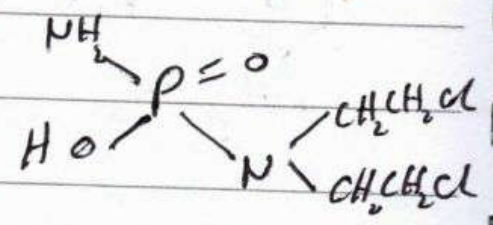 NH2
P = O
HO
N
CH2CH2Cl
CH2CH2Cl